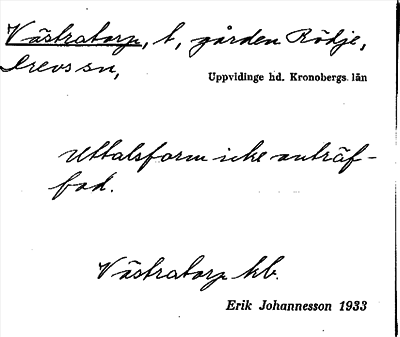 Västratorp, t, gården Rödje,
Drevs sn,
Uppvidinge hd. Kronobergs län
Uttalsform icke anträf-
fad.
Västratorp hb.
Erik Johannesson 1933